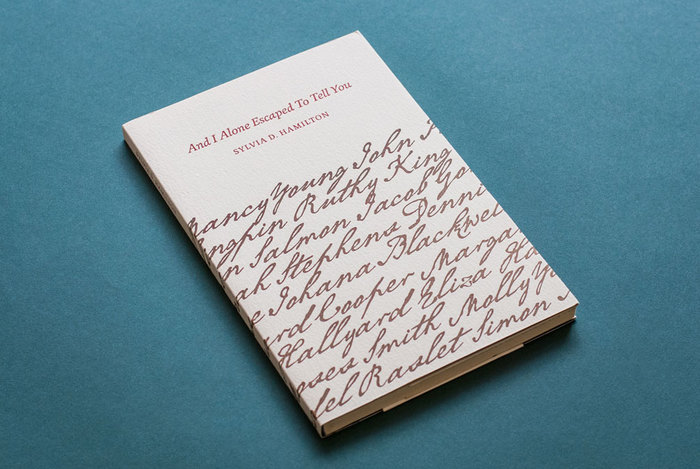 And I Alone Escaped To Tell You
SYLVIA D. HAMILTON
Young John
Ruthy King
Salmon Jacob
Stephens Denni
Johana Blackwel
Cooper Marga
Hallyard Eliza Ha
oses Smith Molly Yo
Raslet Simon